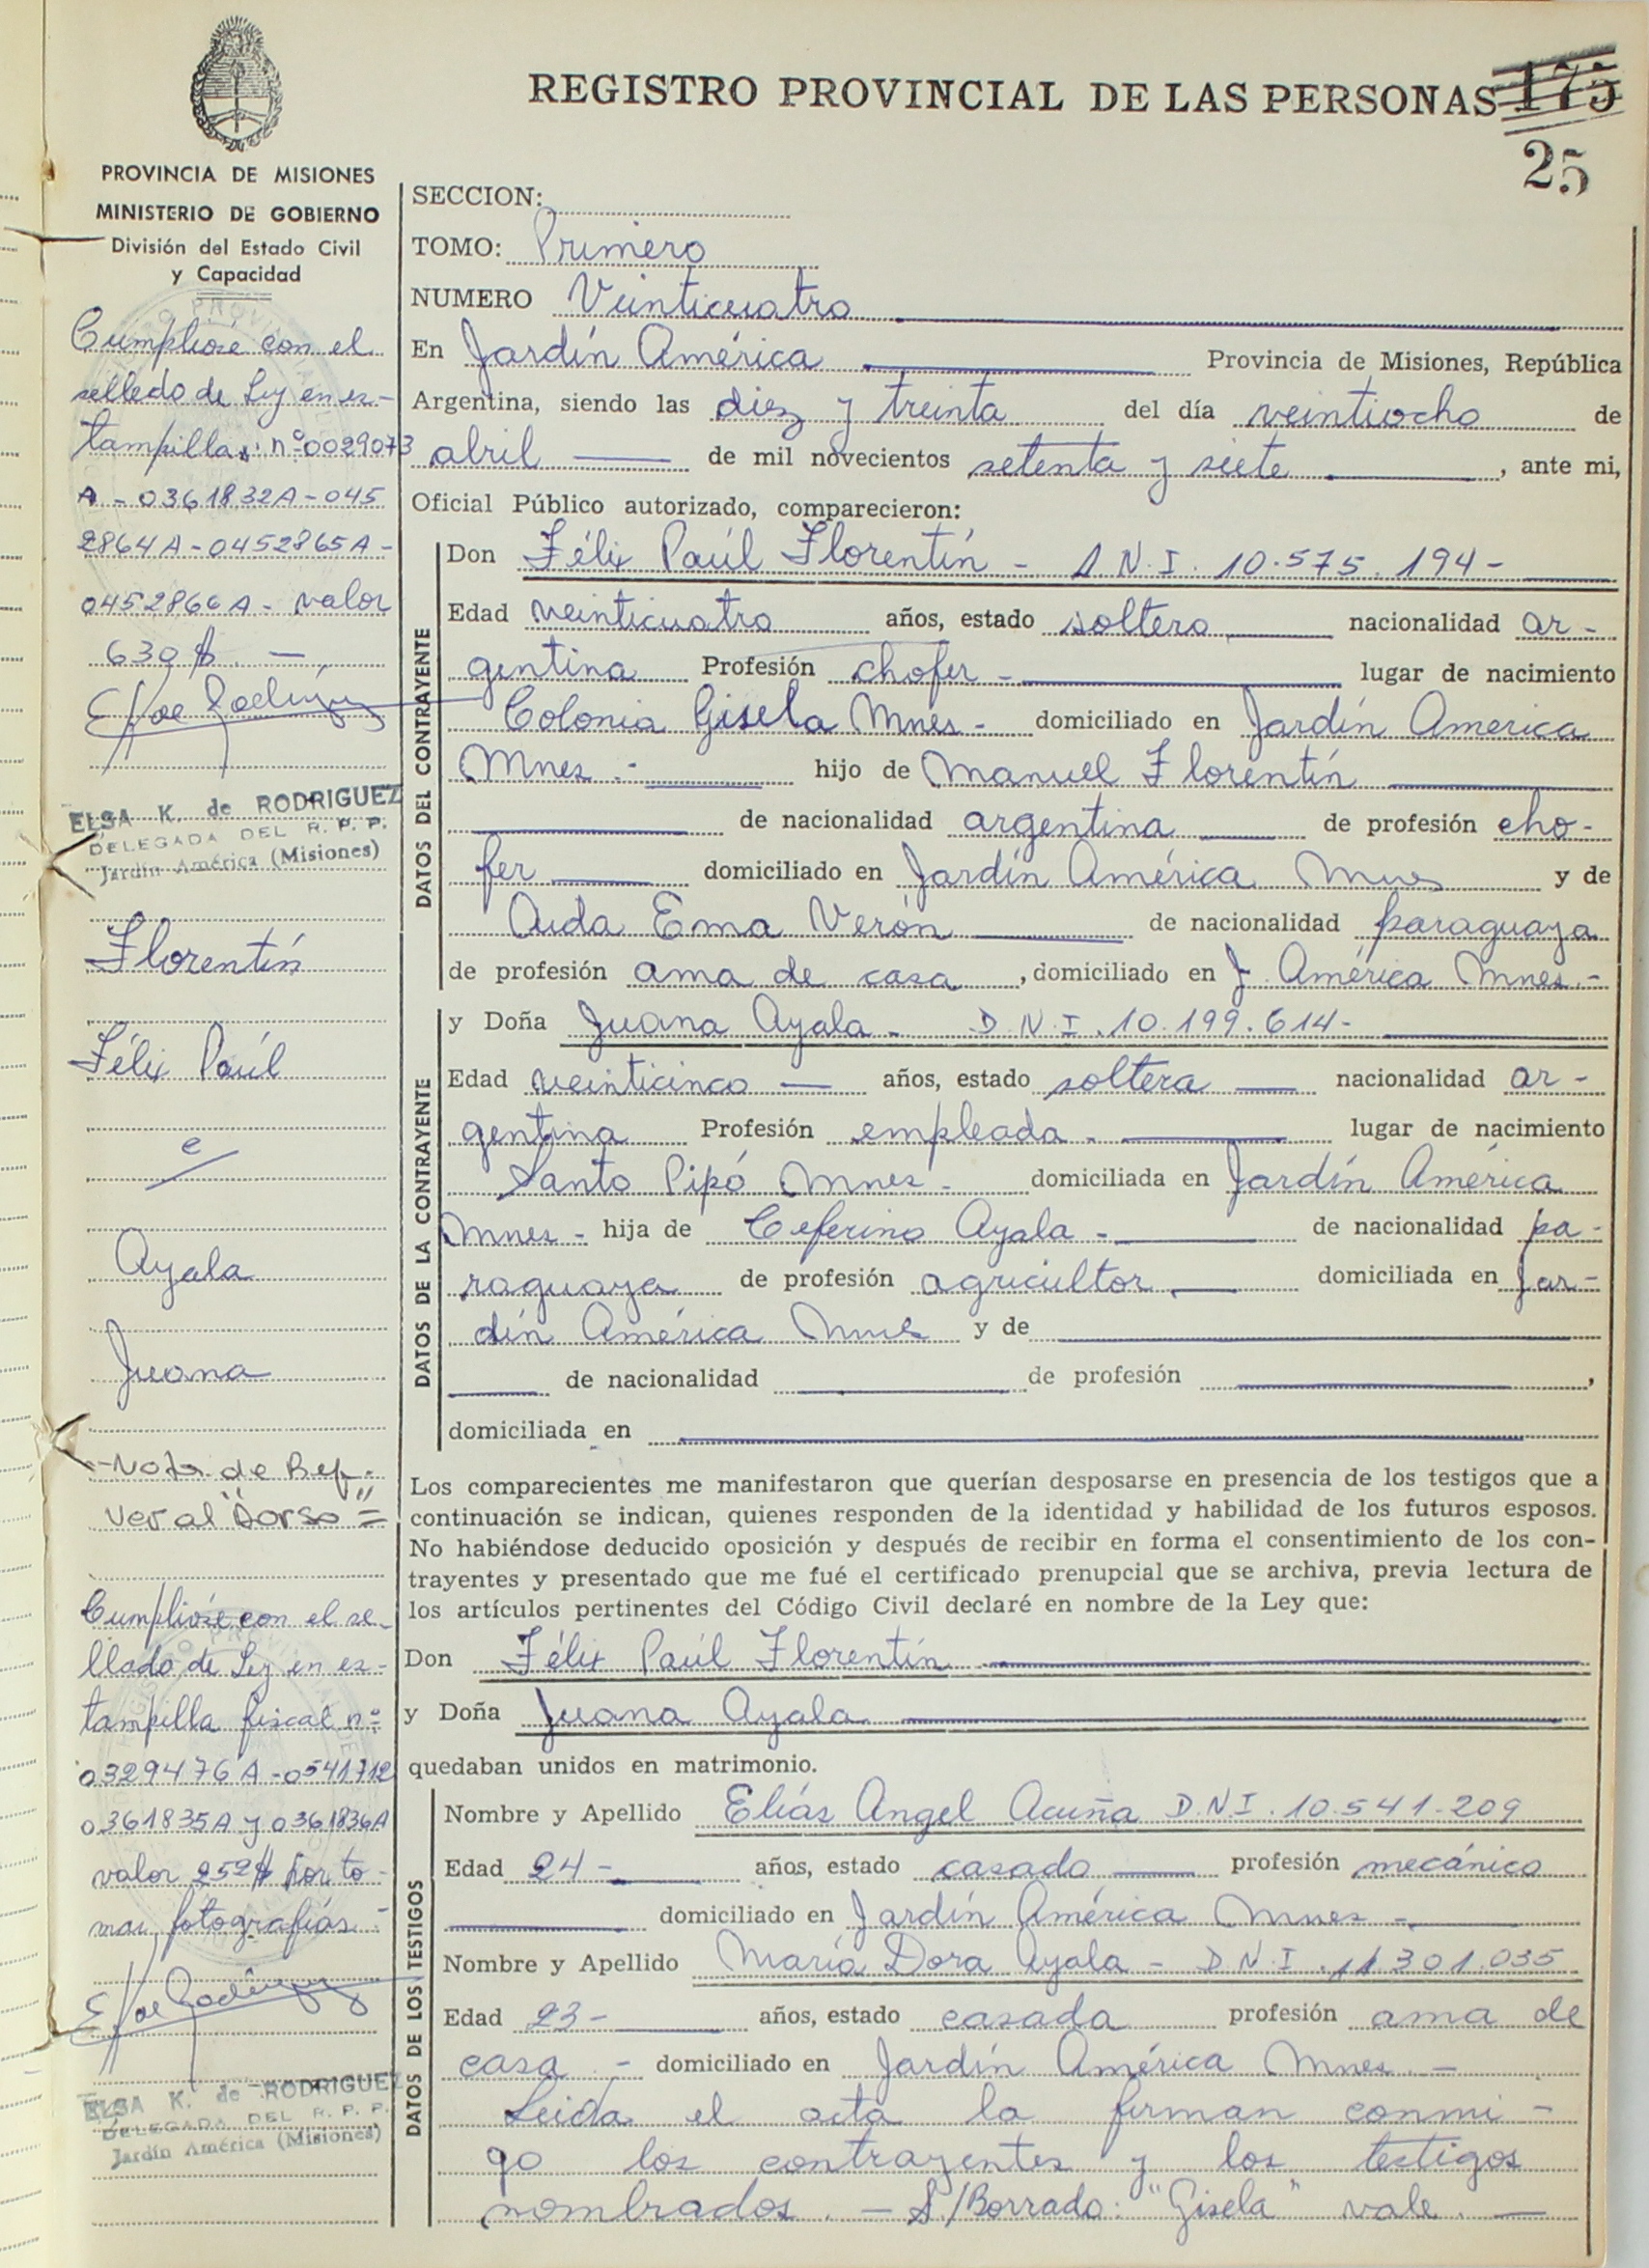 REGISTRO PROVINCIAL DE LAS PERSONAS 175
25
PROVINCIA DE MISIONES
MINISTERIO DE GOBIERNO
División del Estado Civil
y Capacidad
Cumplióse con el
sellado de Ley en es-
tampillas nº 0029073
A - 0361832A - 045
2864A - 0452865A -
0452866A - valor
639 $. -
ELSA K. de RODRIGUEZ
DELEGADA DEL R. P. P.
Jardín América (Misiones)
Florentín
Félix Paúl
e/
Ayala
Juana
- Nota de Ref.
"Ver al Dorso" =
Cumplióse con el se-
llado de Ley en es-
tampilla fiscal nº
0329476A - 0541712
0361835A y 0361836A
valor 252$ por to-
mar fotografías -
ELSA K. de RODRIGUEZ
DELEGADA DEL R. P. P.
Jardín América (Misiones)
SECCION:
TOMO: Primero
NUMERO Veinticuatro
En Jardín América Provincia de Misiones, República
Argentina, siendo las diez y treinta del día veintiocho de
abril de mil novecientos setenta y siete, ante mi,
Oficial Público autorizado, comparecieron:
DATOS DEL CONTRAYENTE
Don Félix Paúl Florentín - D.N.I. 10.575.194 -
Edad veinticuatro años, estado soltero nacionalidad ar-
gentina Profesión chofer - lugar de nacimiento
Colonia Gisela Mnes - domiciliado en Jardín America
Mnes.- hijo de Manuel Florentín
de nacionalidad argentina de profesión cho-
fer domiciliado en Jardín América Mnes y de
Aida Ema Verón de nacionalidad paraguaya
de profesión ama de casa, domiciliado en J. América Mnes.-
DATOS DE LA CONTRAYENTE
y Doña Juana Ayala - D.N.I. 10.199.614 -
Edad veinticinco años, estado soltera nacionalidad ar-
gentina Profesión empleada - lugar de nacimiento
Santo Pipó Mnes - domiciliada en Jardín América
Mnes - hija de Ceferino Ayala - de nacionalidad pa-
raguaya de profesión agricultor domiciliada en Jar-
dín América Mnes y de
de nacionalidad de profesión ,
domiciliada en
Los comparecientes me manifestaron que querían desposarse en presencia de los testigos que a
continuación se indican, quienes responden de la identidad y habilidad de los futuros esposos.
No habiéndose deducido oposición y después de recibir en forma el consentimiento de los con-
trayentes y presentado que me fué el certificado prenupcial que se archiva, previa lectura de
los artículos pertinentes del Código Civil declaré en nombre de la Ley que:
Don Félix Paúl Florentín
y Doña Juana Ayala
quedaban unidos en matrimonio.
DATOS DE LOS TESTIGOS
Nombre y Apellido Elías Angel Acuña D.N.I. 10.541.209
Edad 24 - años, estado casado profesión mecánico
domiciliado en Jardín América Mnes -
Nombre y Apellido María Dora Ayala - D.N.I. 11.301.035
Edad 23 - años, estado casada profesión ama de
casa - domiciliado en Jardín América Mnes. -
Leida el acta la firman conmi-
go los contrayentes y los testigos
nombrados. - S/Borrado: "Gisela" vale. -